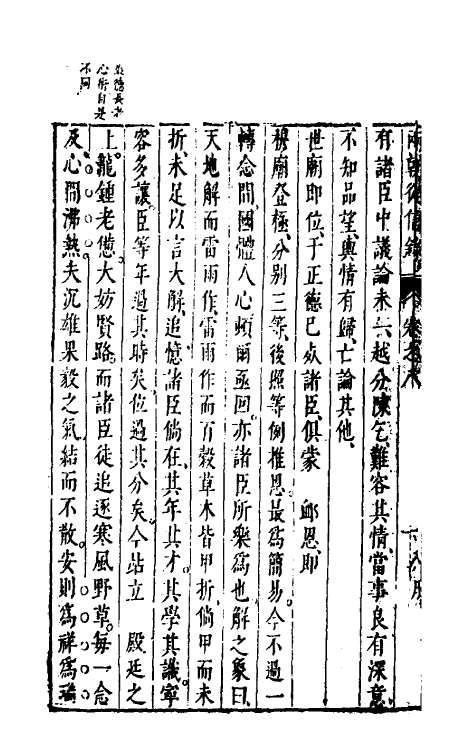 兩朝從信錄 卷之八 六 八月
有諸臣中議論未六越分陳乞、難容其情、當事良有深意、
不知品望、輿情有歸、亡論其他、
世廟即位、于正德已處諸臣、俱蒙 䘏恩、即
穆廟登極、分別三等、後照等例推恩、最爲簡易、今不過一
轉念間、國體人心頓爾亟回、亦諸臣所樂爲也、解之象曰、
天地解而雷雨作、雷雨作而百穀草木皆甲折、倘甲而未
折、未足以言大解、追憶諸臣倘在、其年其才、其學其識、寧
容多讓、臣等年過其時矣、位過其分矣、今站立 殿廷之
上、龍鍾老憊、大妨賢路、而諸臣徒追逐寒風野草、每一念
及、心間沸熱、夫沉雄果毅之氣結而不散、安則爲祥爲瑞
長者
心術自是
不同